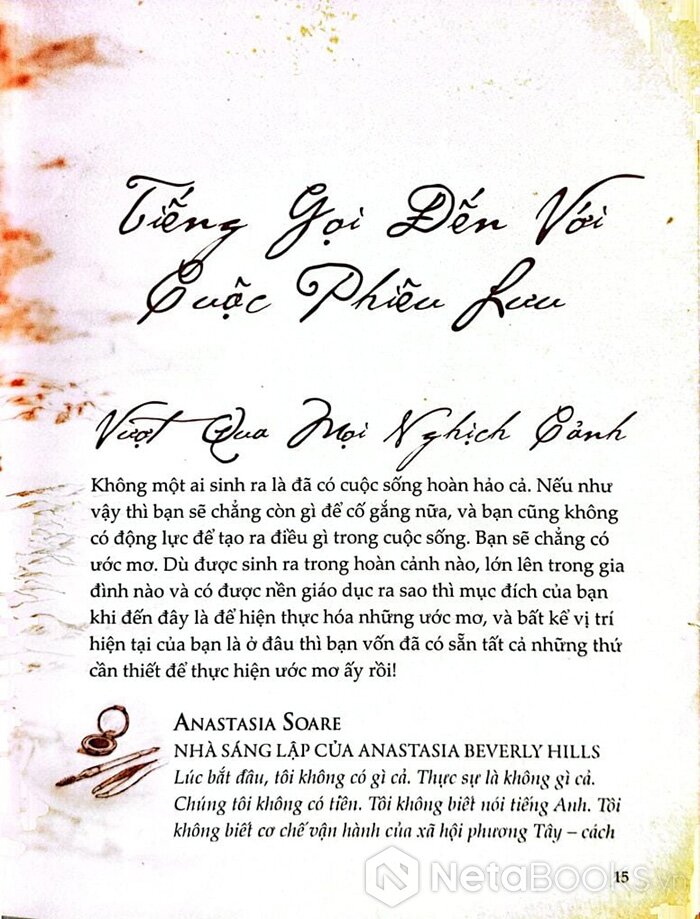 Tiếng Gọi Đến Với
Cuộc Phiêu Lưu
Vượt Qua Mọi Nghịch Cảnh
Không một ai sinh ra là đã có cuộc sống hoàn hảo cả. Nếu như
vậy thì bạn sẽ chẳng còn gì để cố gắng nữa, và bạn cũng không
có động lực để tạo ra điều gì trong cuộc sống. Bạn sẽ chẳng có
ước mơ. Dù được sinh ra trong hoàn cảnh nào, lớn lên trong gia
đình nào và có được nền giáo dục ra sao thì mục đích của bạn
khi đến đây là để hiện thực hóa những ước mơ, và bất kể vị trí
hiện tại của bạn là ở đâu thì bạn vốn đã có sẵn tất cả những thứ
cần thiết để thực hiện ước mơ ấy rồi!
ANASTASIA SOARE
NHÀ SÁNG LẬP CỦA ANASTASIA BEVERLY HILLS
Lúc bắt đầu, tôi không có gì cả. Thực sự là không gì cả.
Chúng tôi không có tiền. Tôi không biết nói tiếng Anh. Tôi
không biết cơ chế vận hành của xã hội phương Tây – cách
15
NetaBooks.vn